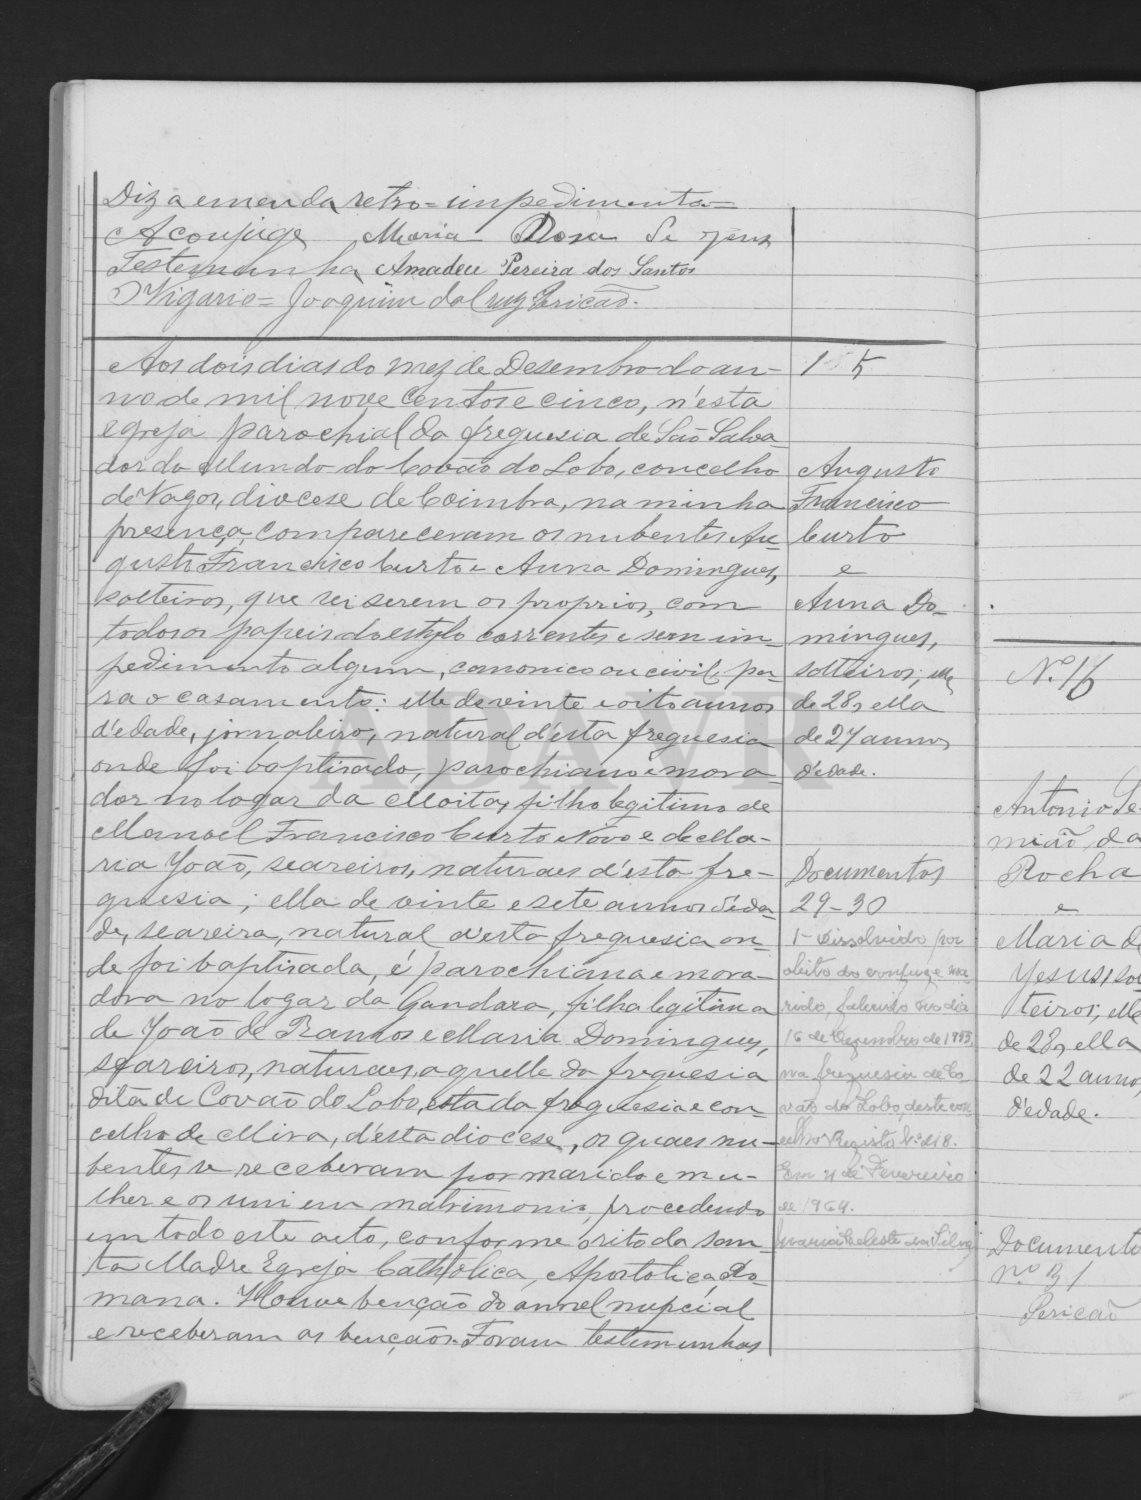 Diz a emenda retro = impedimento =
A conjuge Maria Rosa de Jesus
Testemunha Amadeu Pereira dos Santos
O Vigario = Joaquim da Cruz Pericão.
Aos dois dias do mez de Desembro do an-
no de mil nove centos e cinco, n'esta
egreja parochial da freguesia de São Salva-
dor do Mundo do Covão do Lobo, concelho
de Vagos, diocese de Coimbra, na minha
presença, compareceram os nubentes Au-
gusto Francisco Curto e Anna Domingues,
solteiros, que sei serem os proprios, com
todos os papeis do estylo correntes e sem im-
pedimento algum, canonico ou civil, pa-
ra o casamento: elle de vinte e oito annos
d'edade, jornaleiro, natural d'esta freguesia
onde foi baptisado, parochiano e mora-
dor no logar da Moita, filho legitimo de
Manoel Francisco Curto Novo e de Ma-
ria João, seareiros, naturaes d'esta fre-
guesia; ella de vinte e sete annos d'eda-
de, seareira, natural d'esta freguesia on-
de foi baptisada, é parochiana e mora-
dora no logar da Gandara, filha legitima
de João de Ramos e Maria Domingues,
seareiros, naturaes, aquelle da freguesia
dita de Covão do Lobo, esta da freguesia e con-
celho de Mira, d'esta diocese, os quaes nu-
bentes se receberam por marido e mu-
lher e os uni em matrimonio, procedendo
em todo este acto, conforme o rito da San-
ta Madre Egreja Catholica, Apostolica, Ro-
mana. Houve benção do annel nupcial
e receberam as bençãos. Foram testemunhas
15
Augusto
Francisco
Curto
e
Anna Do-
mingues,
solteiros; elle
de 28, ella
de 27 annos
d'edade.
Documentos
29-30
1- Dissolvido por
obito do conjuge ma-
rido, falecido no dia
16 de Dezembro de
na freguesia de Co-
vão do Lobo, deste con-
celho Registo Nº 218.
Em 4 de Fevereiro
de 1964.
Maria Celeste da Silva
Nº 16
Antonio Se-
mião da
Rocha
e
Maria de
Jesus, sol-
teiros; elle
de 28, ella
de 22 annos
d'edade.
Documento
nº 31
Pericão
ADAVR